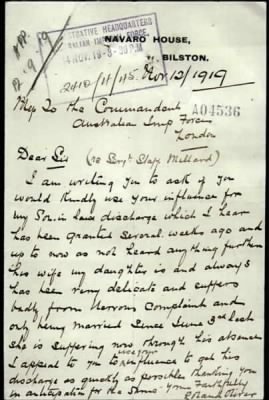 NAVARO HOUSE,
BILSTON.
ADMINISTRATIVE HEADQUARTERS
FORCE.
14 NOV. 19
Nov 12/1919
A04536
To the Commandant
Australian Imp Force
London
Dear Sir (re Sergt Millard)
I am writing you to ask if you
would kindly use your influence for
my Son in laws discharge which I hear
has been granted several weeks ago and
up to now as not heard anything further
his wife my daughter is and always
has been very delicate and suffers
badly from nervous complaint and
only being married since June 3rd last
she is suffering now through his absence
I appeal to you to use your influence to get his
discharge as quickly as possible thanking you
in anticipation for the same yours faithfully